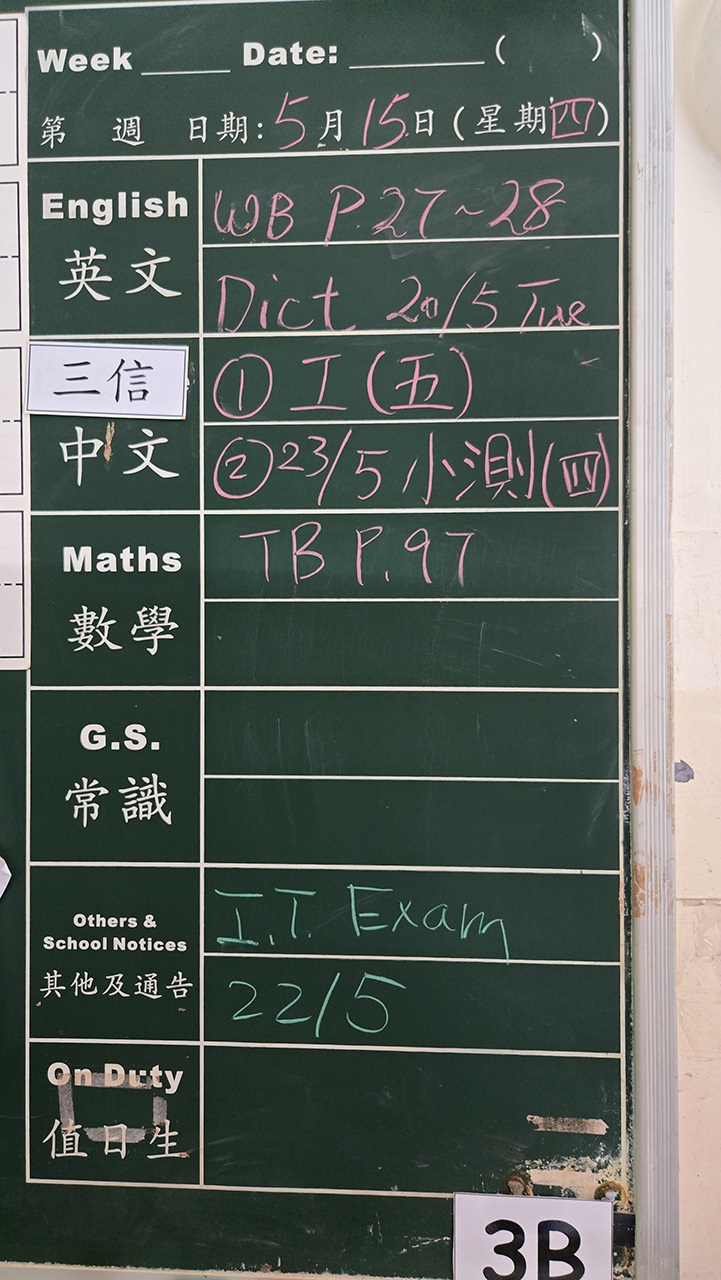 Week _____ Date: ________ (    )
第 週 日期: 5月15日(星期四)
English WB P.27~28
英文 Dict 20/5 Tue
三信 ① 工(五)
中文 ②23/5 小測(四)
Maths TB P.97
數學
G.S.
常識
Others & School Notices I.T. Exam
其他及通告 22/5
On Duty
值日生
3B